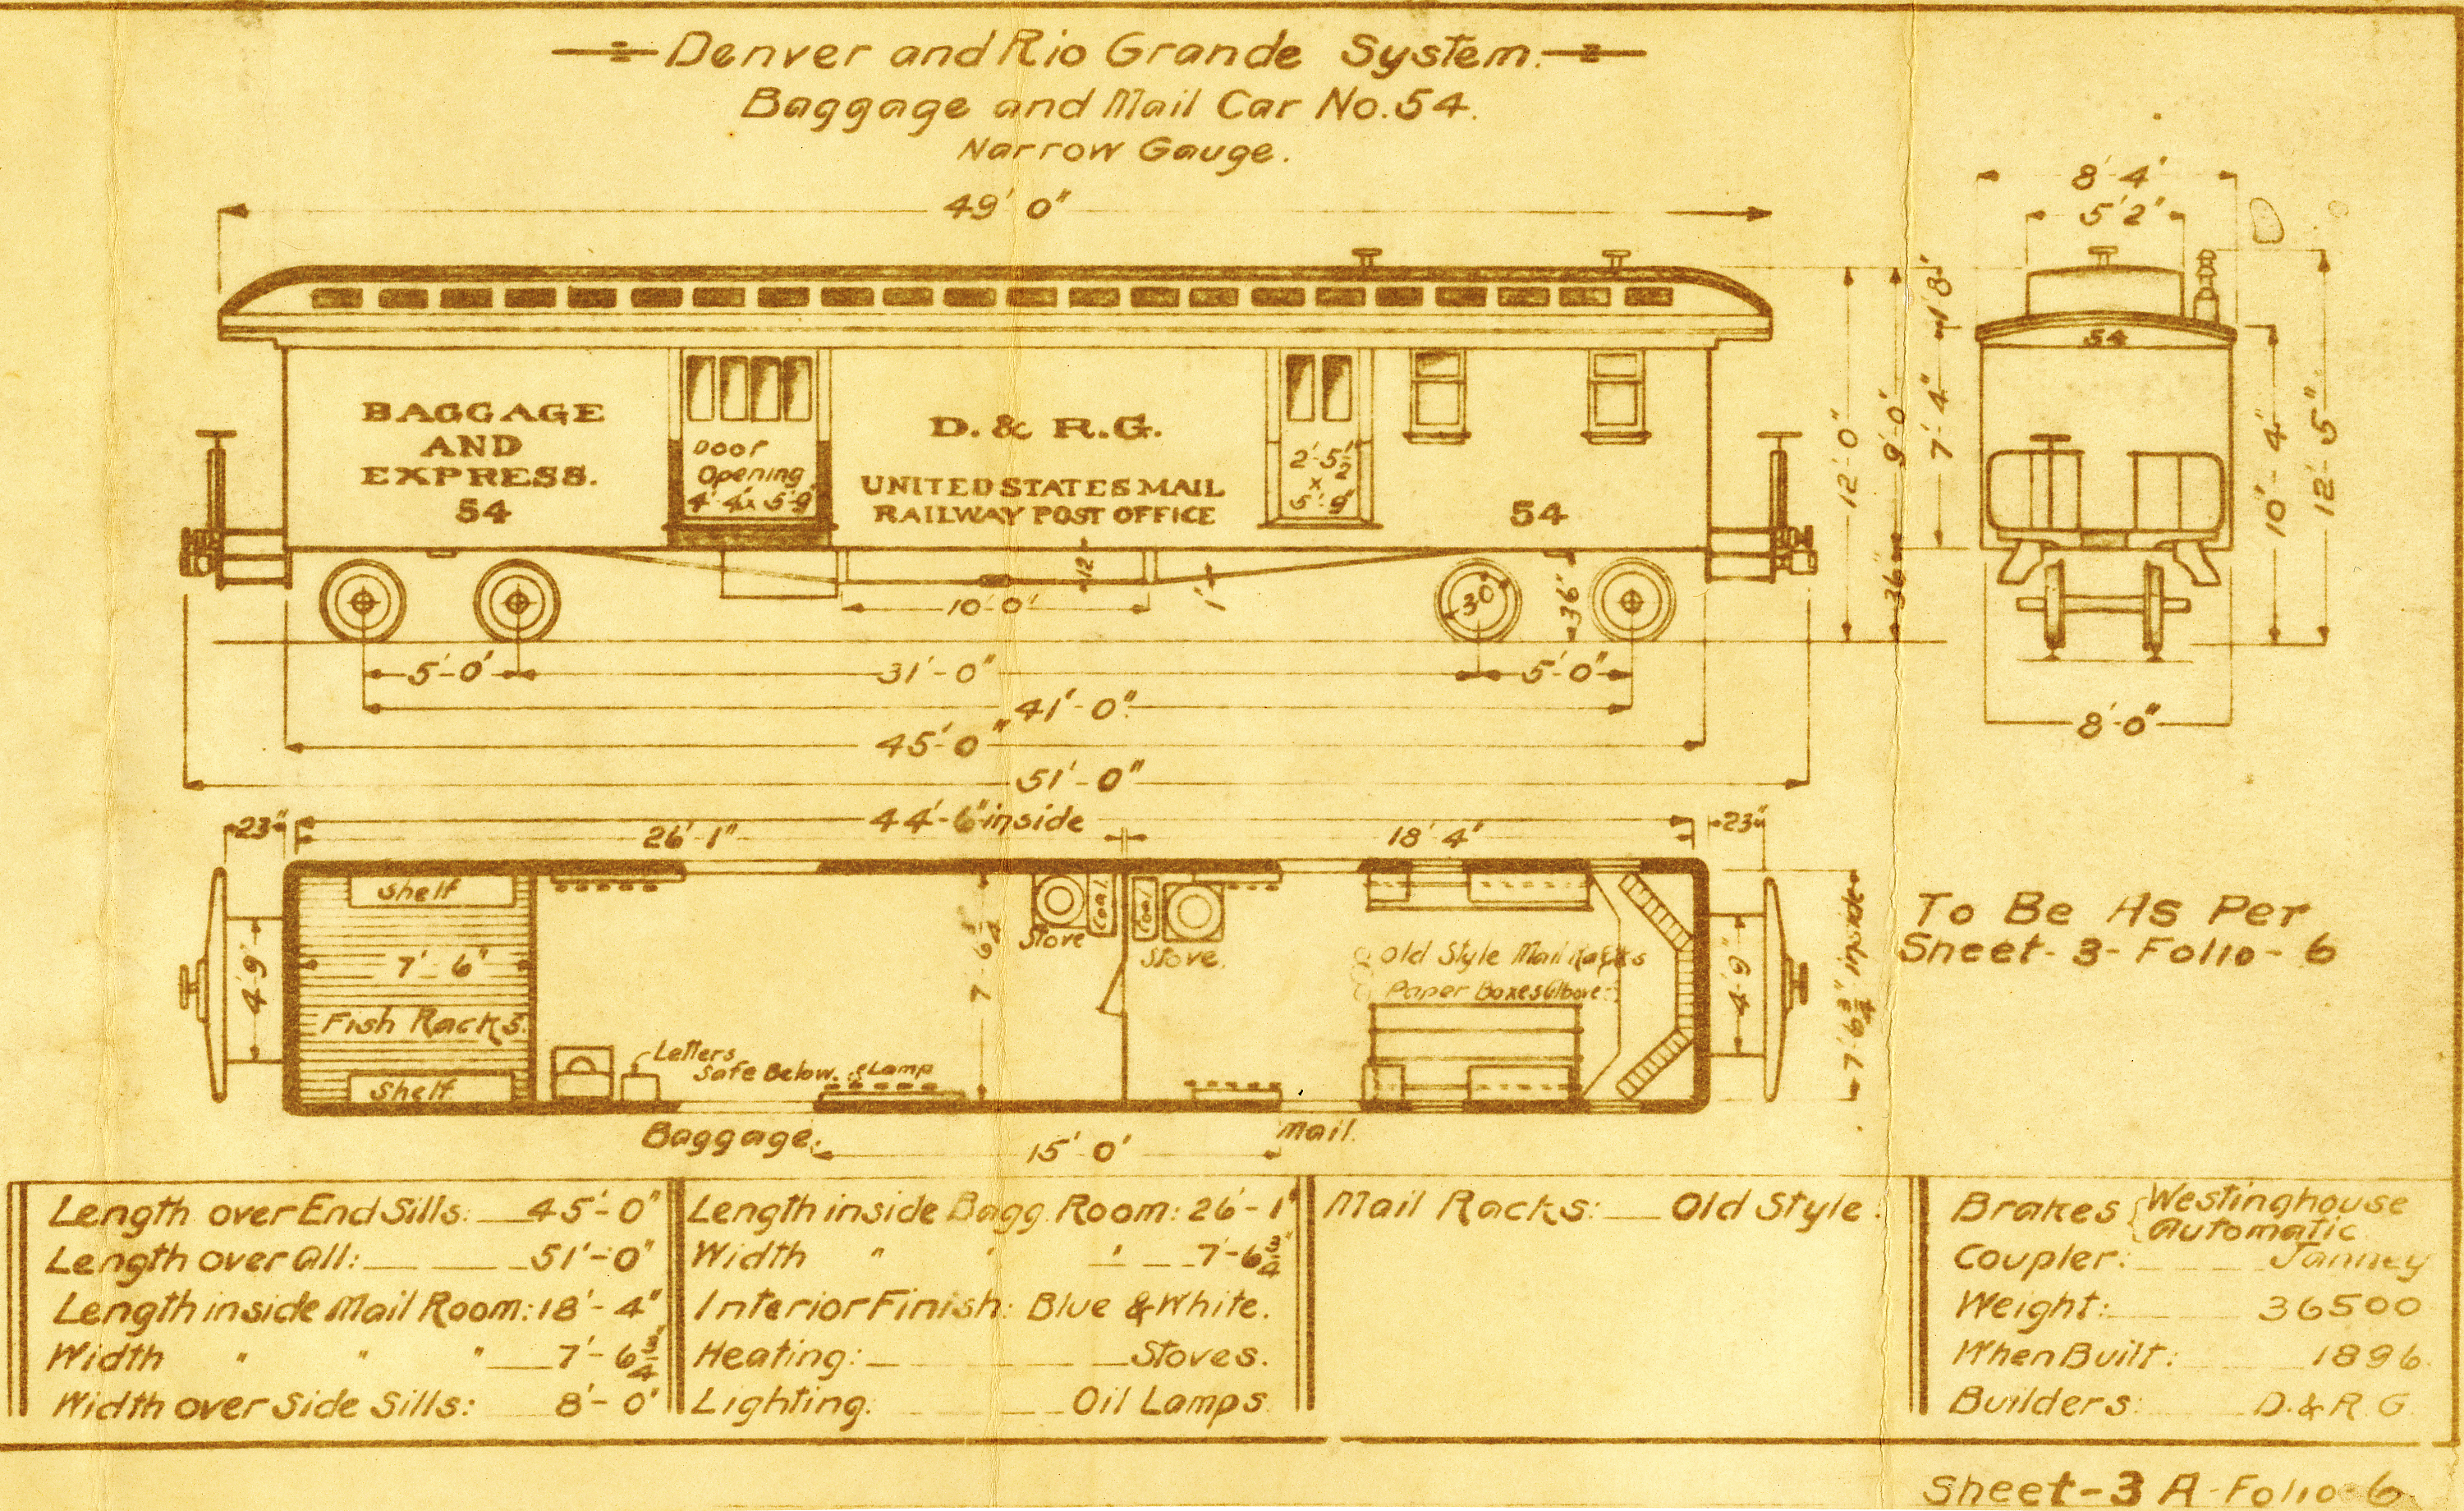 Denver and Rio Grande System.
Baggage and Mail Car No. 54.
Narrow Gauge.
49' 0"
8' 4"
5' 2"
1' 8"
54
BAGGAGE
AND
EXPRESS.
54
Door
Opening
4' 4" x 5' 9"
D. & R.G.
UNITED STATES MAIL
RAILWAY POST OFFICE
2'-5½"
x
5'-9"
54
12'-0"
9'-0"
36"
7'-4"
10'-4"
12'-5"
12"
10'-0"
1"
30"
36"
5'-0"
31'-0"
5'-0"
41'-0"
45'-0"
51'-0"
8'-0"
23"
44'-6" inside
23"
26'-1"
18' 4"
Shelf
7'-6"
Fish Racks.
Shelf
4'-9"
Letters
Safe Below.
Lamp
7'-6¾"
Stove
Coal
Coal
Stove.
Old Style Mail Racks
Paper Boxes Above
4'-9"
7'-6¾" inside
To Be As Per
Sheet-3-Folio-6
Baggage.
15' 0"
Mail.
Length over End Sills: 45'-0"
Length over All: 51'-0"
Length inside Mail Room: 18'-4"
Width " " " 7'-6¾"
Width over Side Sills: 8'-0"
Length inside Bagg. Room: 26'-1"
Width " " " 7'-6¾"
Interior Finish: Blue & White.
Heating: Stoves.
Lighting: Oil Lamps
Mail Racks: Old Style.
Brakes { Westinghouse
Automatic
Coupler: Janney
Weight: 36500
When Built: 1896
Builders: D. & R. G.
Sheet-3 A-Folio-6